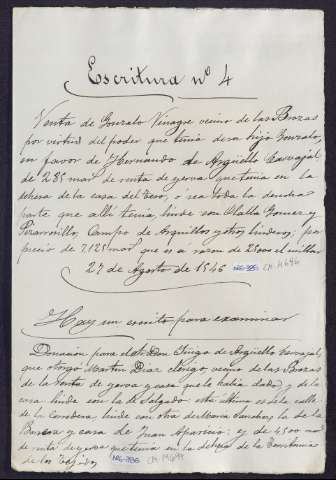 Escritura nº 4
Venta de Gonzalo Vinagre vecino de las Brozas
por virtud del poder que tenia de su hijo Gonzalo,
en favor de Hernando de Argüello Carvajal
de 285 mar de renta de yerva que tenia en la
dehesa de la casa del , ó sea toda la
parte que alli tenia, linde con Olalla Gomez y
Campo de Arguillos y otros linderos; por
precio de 7.125 mar que es á razon de 25000 el millar
27 de Agosto de 1546
Hay un escrito para examinar
Donacion para el dho Don Iñigo de Argüello Carvajal,
que otorgó Martin Diaz clerigo, vecino de las Brozas
de la renta de yerva y casa que le habia dado, y de la
casa linde con la de Salgado: esta ultima es de la calle
de la Corredera linde con otra de Maria Sanchez la de la
y casa de Juan Aparicio; y de 4500 mr
de renta de yerva que tenia en la dehesa de la
de los